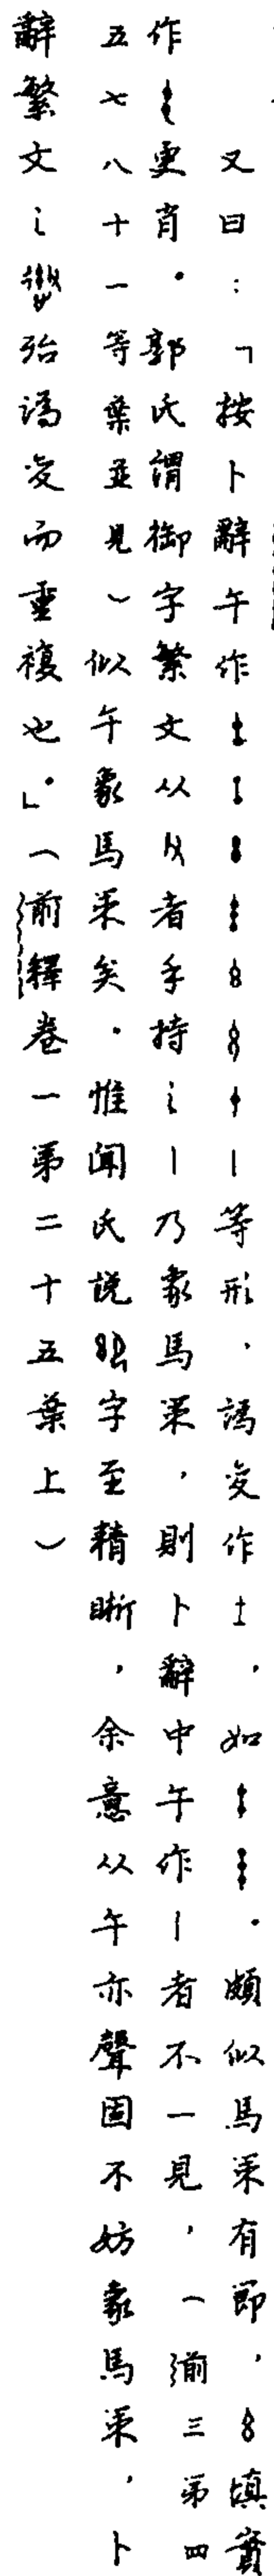 又曰：「按卜辭午作等形，譌变作十，如。頗似馬策有節，𠙴填實
作更肖。郭氏謂御字繁文从攴者手持之丨乃象馬策，則卜辭中午作丨者不一見，（前三第四
五七八十一等葉並見）似午象馬策矣。惟聞氏説字至精晰，余意从午亦聲固不妨象馬策，卜
辭繁文之殆譌变而重複也。」（前釋卷一第二十五葉上）